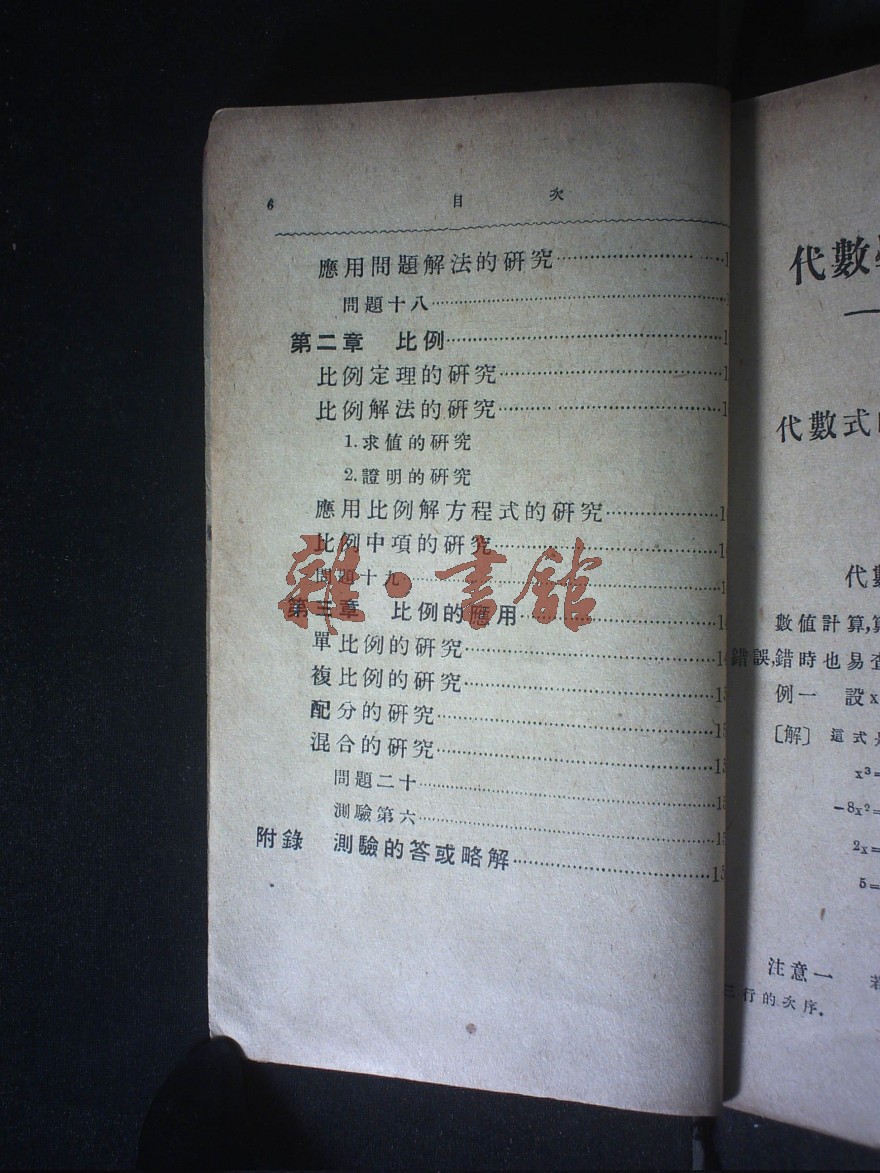 6 目 次
應用問題解法的研究
問題十八
第二章 比例
比例定理的研究
比例解法的研究
1.求值的研究
2.證明的研究
應用比例解方程式的研究
比例中項的研究
問題十九
第三章 比例的應用
單比例的研究
複比例的研究
配分的研究
混合的研究
問題二十
測驗第六
附錄 測驗的答或略解
雜·書館
代數學
代數式
代數
數值計算,算
錯誤,錯時也易查
例一 設x
〔解〕 這式是
x³=
-8x²=
2x=
5=
注意一 若
三行的次序.